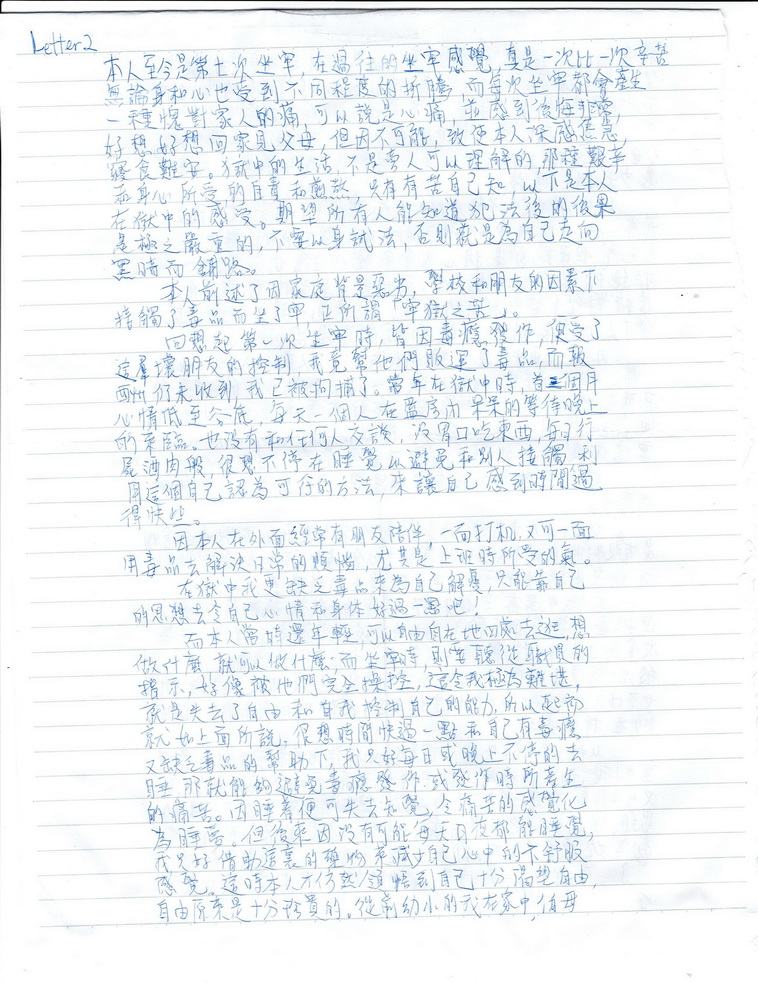 Letter 2
本人至今是第七次坐牢,在過往的坐牢感覺,真是一次比一次辛苦
無論身和心也受到不同程度的折騰,而每次坐牢都會產生
一種愧對家人的痛,可以說是心痛,並感到後悔非常,
好想好想回家見父母,但因不可能,致使本人深感焦急,
寢食難安。獄中的生活,不是旁人可以理解的,那種艱辛
和身心所受的自責和煎熬,只有有苦自己知,以下是本人
在獄中的感受。期望所有人能知道犯法後的後果
是極之嚴重的,不要以身試法,否則就是為自己走向
黑暗而鋪路。
本人前述了因家庭背景惡劣,學校和朋友的因素下
接觸了毒品而坐了牢,正所謂「牢獄之苦」。
回想起第一次坐牢時,皆因毒癮發作,便受了
這羣壞朋友的控制,我竟幫他們販運了毒品,而報
酬仍未收到,我已被拘捕了。當年在獄中時,首三個月
心情低至谷底,每天一個人在監房內呆呆的等待晚上
的來臨。也沒有和任何人交談,沒胃口吃東西,每日行
屍酒肉般,很想不停在睡覺以避免和別人接觸,利
用這個自己認為可行的方法,來讓自己感到時間過
得快些。
因本人在外面經常有朋友陪伴,一面打机,又可一面
用毒品去解決日常的煩惱,尤其是上班時所受的氣。
在獄中我更缺乏毒品來為自己解憂,只能靠自己
的思想去令自己心情和身体好過一點吧!
而本人當時還年輕,可以自由自在地四處去逛,想
做什麼就可以做什麼,而坐牢時,則要聽從職員的
指示,好像被他們完全操控,這令我極為難堪,
就是失去了自由和自我控制自己的能力,所以起初
就如上面所說,很想時間快過一點和自己有毒癮
又缺乏毒品的幫助下,我只好每日或晚上不停的去
睡,那就能夠避免毒癮發作或發作時所產生
的痛苦。因睡着便可失去知覺,令痛苦的感覺化
為睡夢。但後來因沒有可能每天日夜都能睡覺,
我只好借助這裏的藥物來減少自己心中的不舒服
感覺。這時本人才仿然領悟到自己十分渴望自由,
自由原來是十分珍貴的。從前幼小的我在家中,伯母